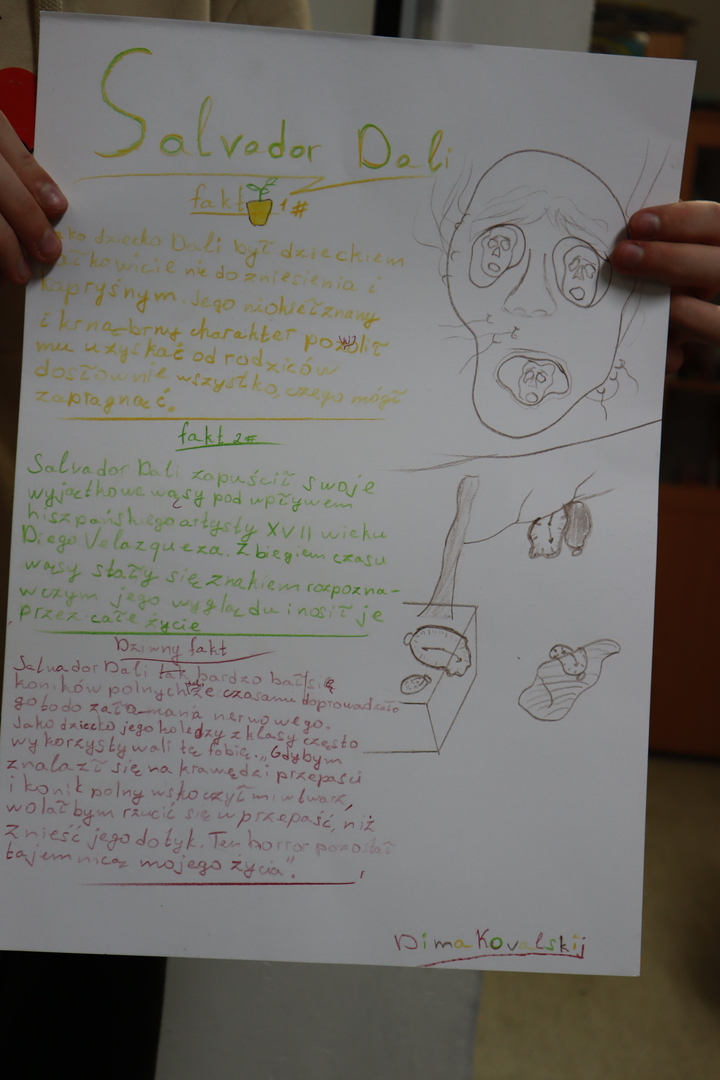 Salvador Dali
fakt 1#
ako dziecko Dali był dzieckiem
ałkowicie nie do zniesienia i
kapryśnym. Jego niokiełznany
i krnąbrny charakter pozwolił
mu uzyskać od rodziców
dosłownie wszystko, czego mógł
zapragnąć.
fakt 2#
Salvador Dali zapuścił swoje
wyjątkowe wąsy pod wpływem
hiszpańskiego artysty XVII wieku
Diego Velazqueza. Z biegiem czasu
wąsy stały się znakiem rozpozna-
wczym jego wyglądu i nosił je
przez całe życie
Dziwny fakt
Salvador Dali tak bardzo bał się
koników polnych że czasami doprowadzało
go to do załamania nerwowego.
Jako dziecko jego koledzy z klasy często
wykorzystywali tę fobię. „Gdybym
znalazł się na krawędzi przepaści
i konik polny wskoczył mi w twarz,
wolałbym rzucić się w przepaść, niż
znieść jego dotyk. Ten horror pozostał
tajemnicą mojego życia”.
Dima Kovalskij